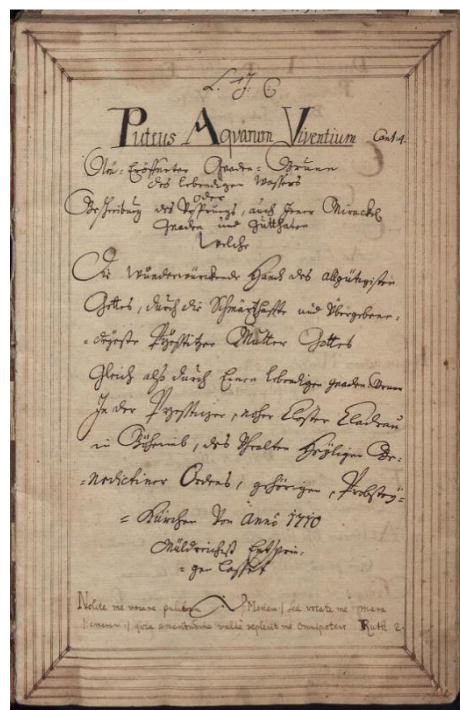 L. J. C
Puteus Aquarum Viventium Cant. 4.
Neü-Eröffneter Gnaden-Brunn
des lebendigen Wassers
oder
Beschreibung des Ursprungs, auch Jener Miracul,
Gnaden und Gutthaten
Welche
Die Wunderwürckende Hand des allgütigisten
Gottes, durch die Schmertzhaffte und Übergebene-
Mutter Gottes
Gleich als durch Einen lebendigen gnaden-Brunn
In der, nacher Closter Cladrau
in Böheimb, des Uhralten Heyligen Be-
-nedictiner Ordens, gehörigen, Probstey-
-Kürchen Von Anno 1710
Mildreichist Entsprin-
-gen lasset
Nolite me vocare sed vocate me mara
quia amaritudine valde replevit me Omnipotens. Ruth 2.